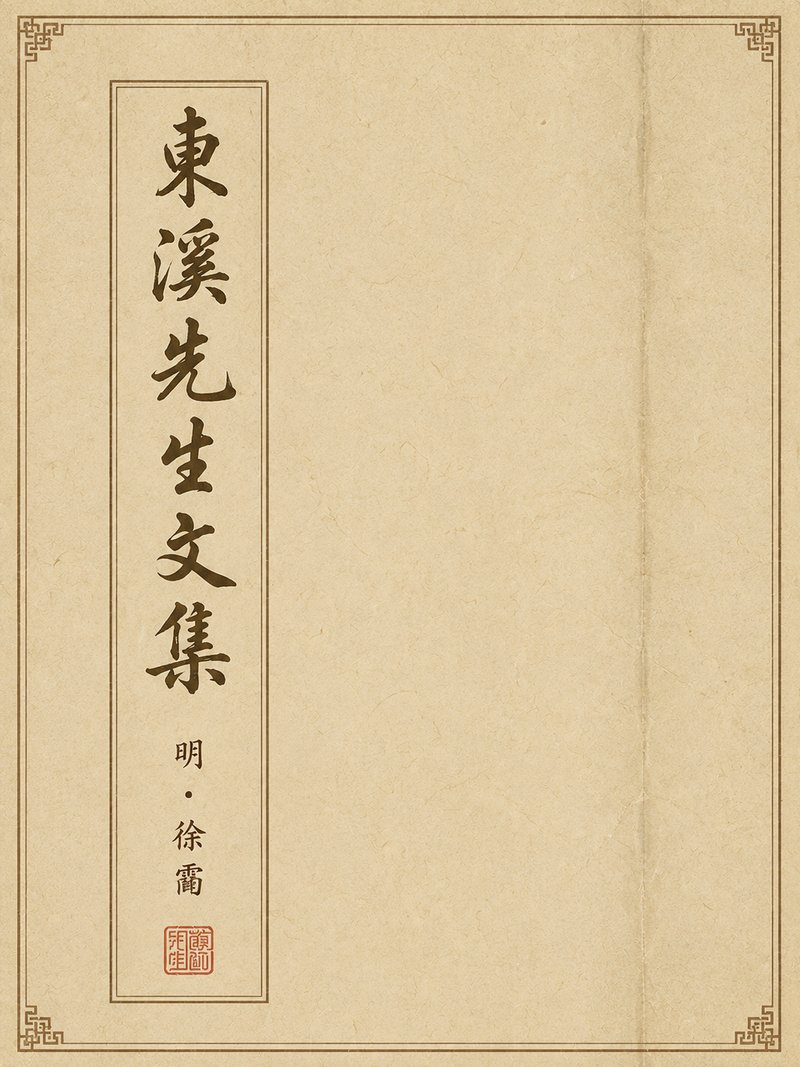 東溪先生文集
明·徐霈